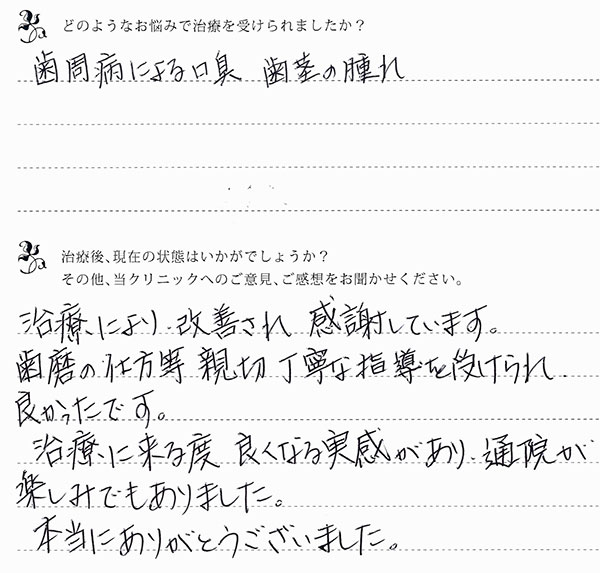 どのようなお悩みで治療を受けられましたか？
歯周病による口臭 歯茎の腫れ
治療後、現在の状態はいかがでしょうか？
その他、当クリニックへのご意見、ご感想をお聞かせください。
治療により改善され 感謝しています。
歯磨の仕方等 親切丁寧な指導を受けられ
良かったです。
治療に来る度 良くなる実感があり、通院が
楽しみでもありました。
本当にありがとうございました。